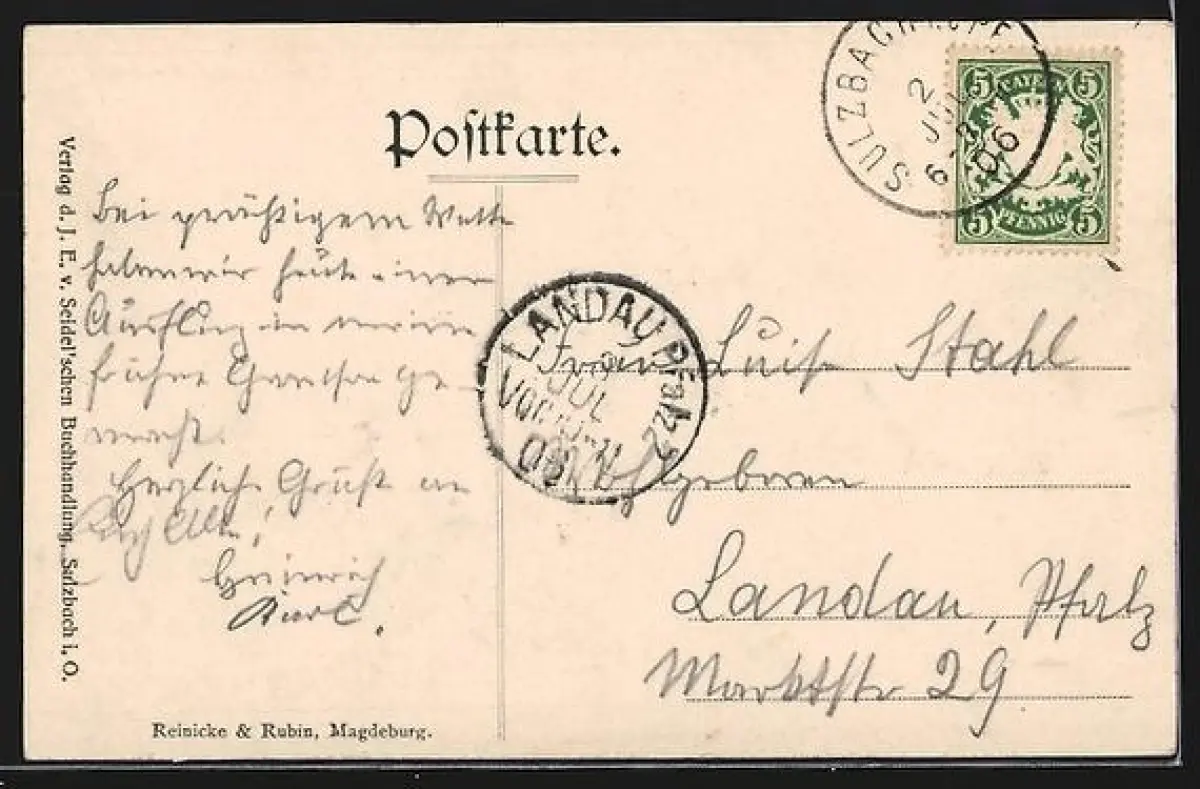 Postkarte.
Verlag d. J. E. v. Seidel'schen Buchhandlung, Sulzbach i. O.
Bei prächtigem Wetter
haben wir heute einen
Ausflug in meine
frühere Garnison ge-
macht.
Herzliche Grüße an
Heinrich
Karl.
Reinicke & Rubin, Magdeburg.
SULZBACH
2
JUL
06
BAYERN
5 5
5 PFENNIG 5
LANDAU Pfalz 2
JUL
VOR
06
Frau Luise Stahl
Wohlgeboren
Landau, Pfalz
Marktstr 29